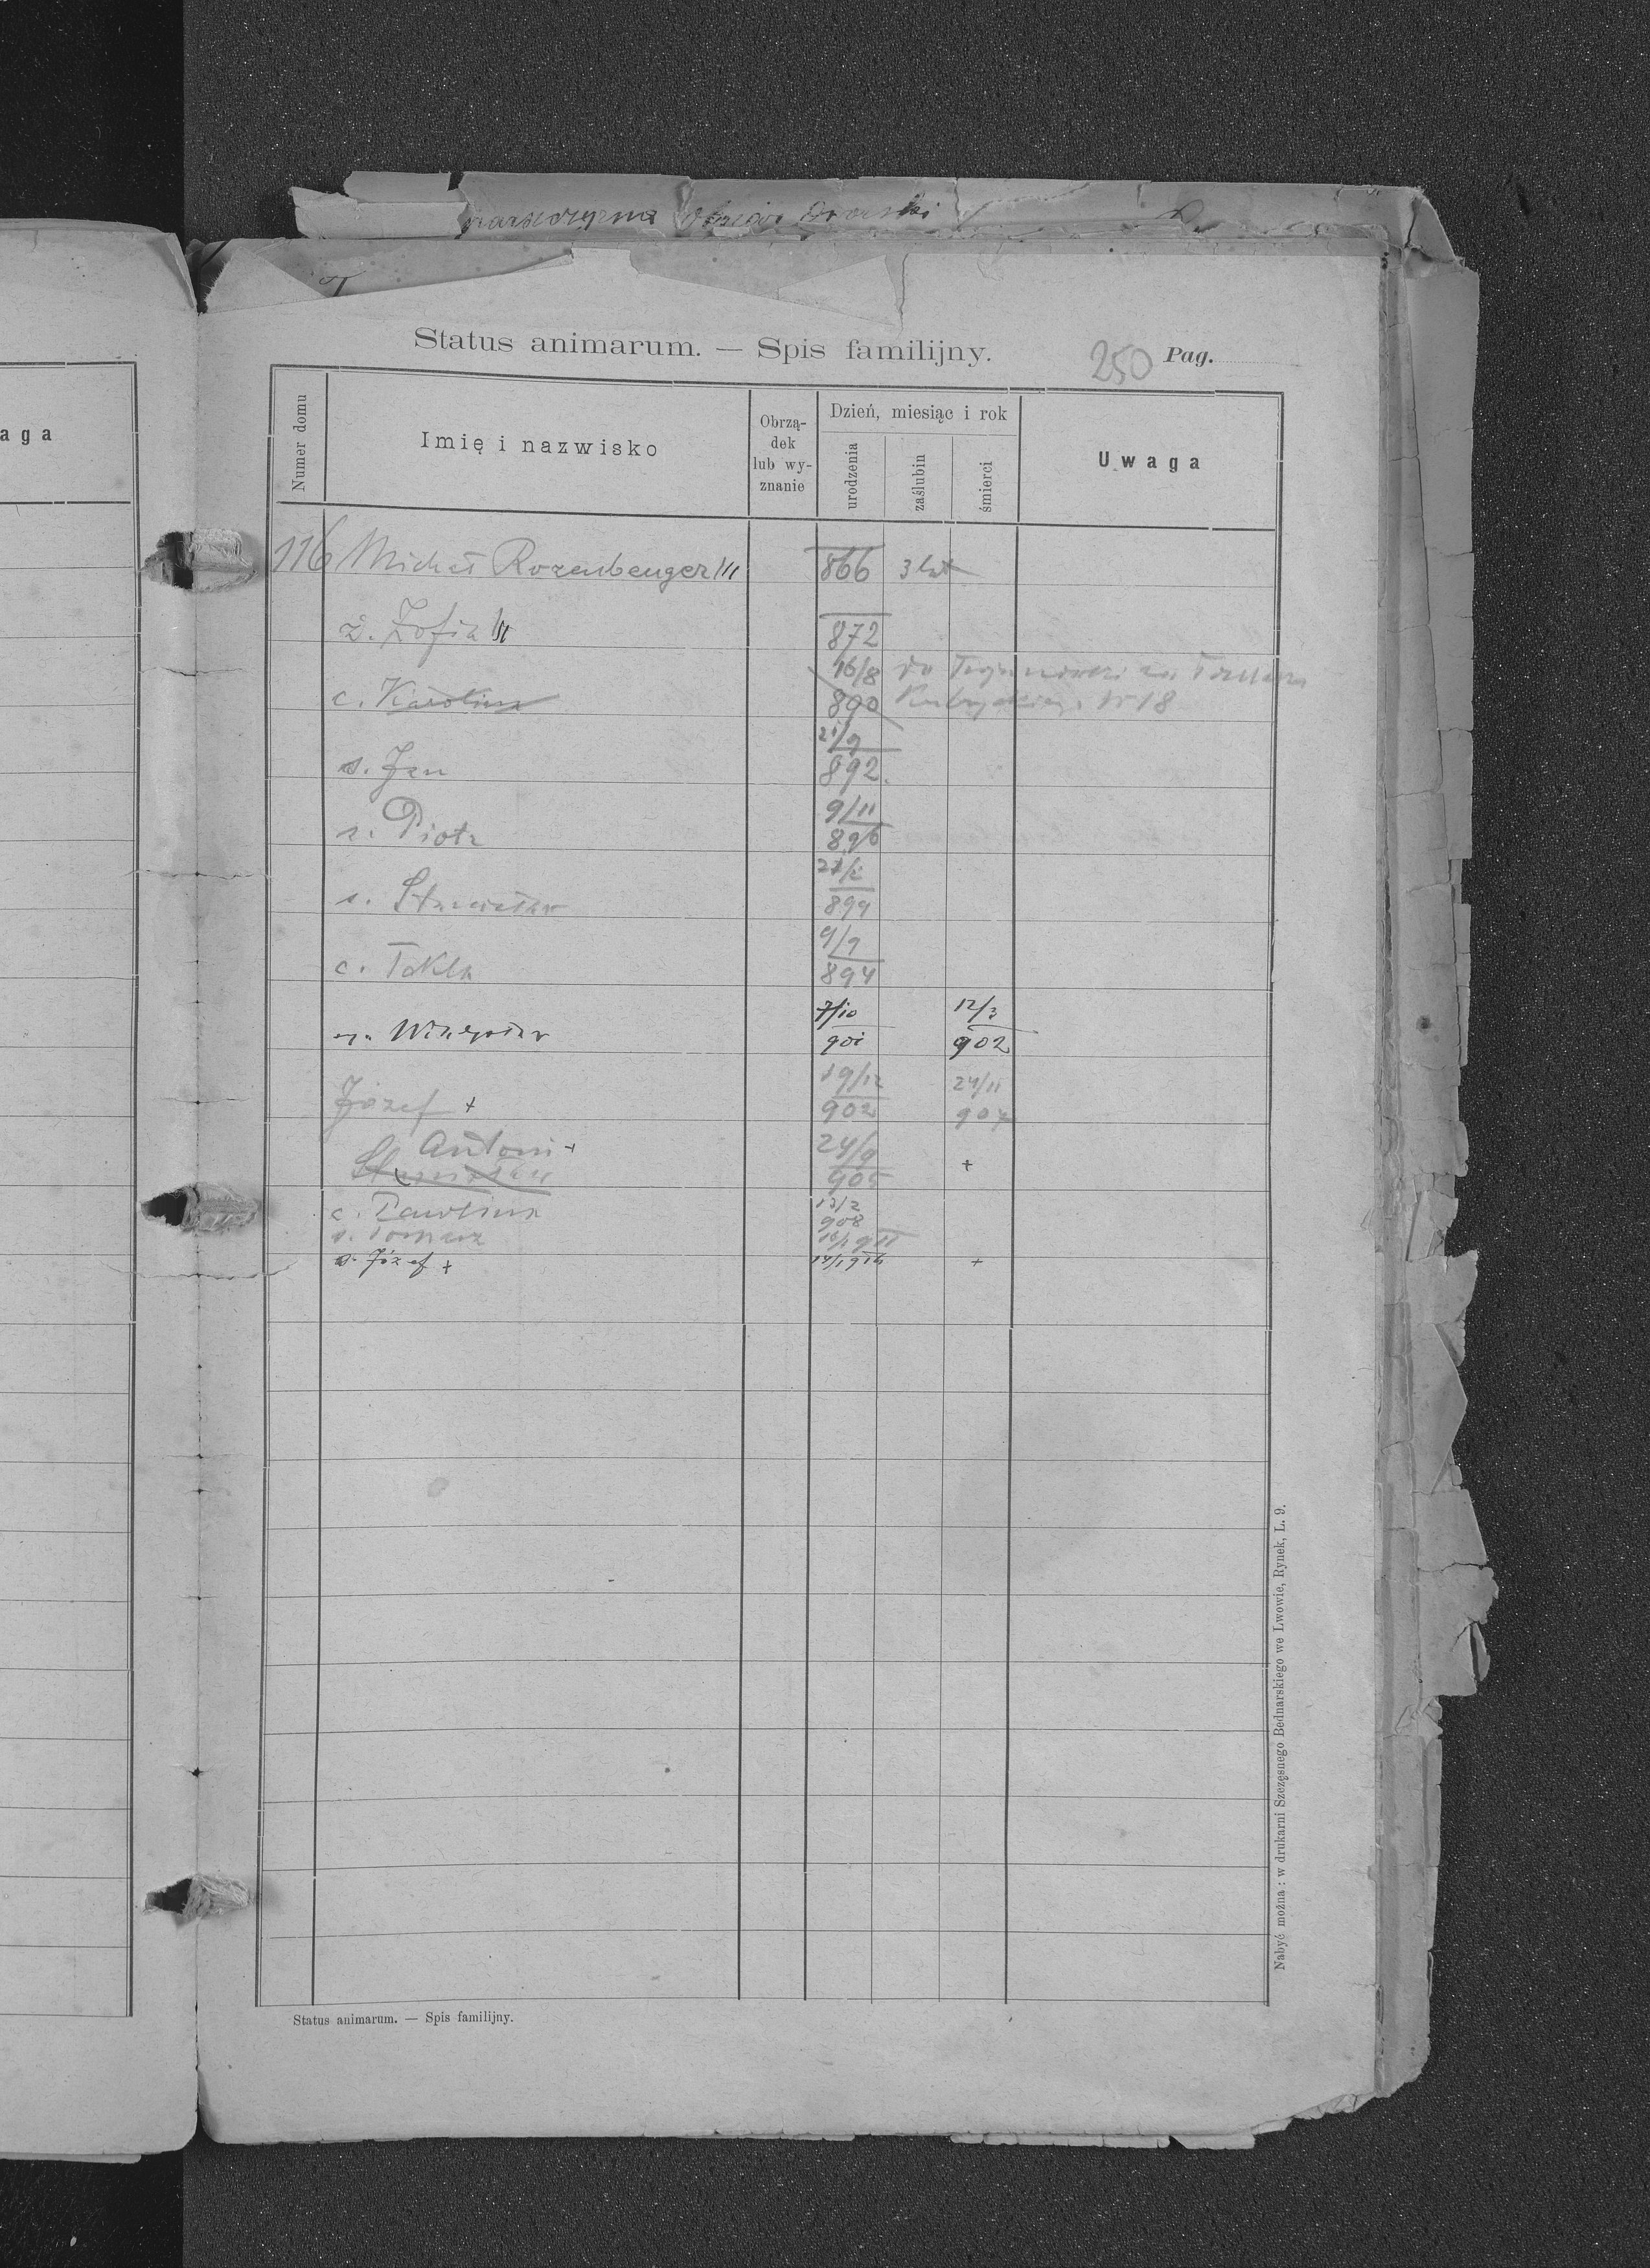 Status animarum. — Spis familijny.
250 Pag.
aga
Numer domu
Imię i nazwisko
Obrzą-
dek
lub wy-
znanie
Dzień, miesiąc i rok
urodzenia
zaślubin
śmierci
Uwaga
116 Michał Rozenberger 866
ż. Zofia 872
c. Karolina 16/8 890 do
s. Jan 21/9 892.
s. Piotr 9/11 896
s. Stanisław 899
c. Tekla 9/9 894
7/10 901 12/3 902
Józef + 19/12 902 24/11 907
Antoni + 24/9 905 +
Stanisław
c. Paulina 13/2 908
s. Tomasz 911
s. Józef + +
Status animarum. — Spis familijny.
Nabyć można : w drukarni Szczęsnego Bednarskiego we Lwowie, Rynek, L. 9.